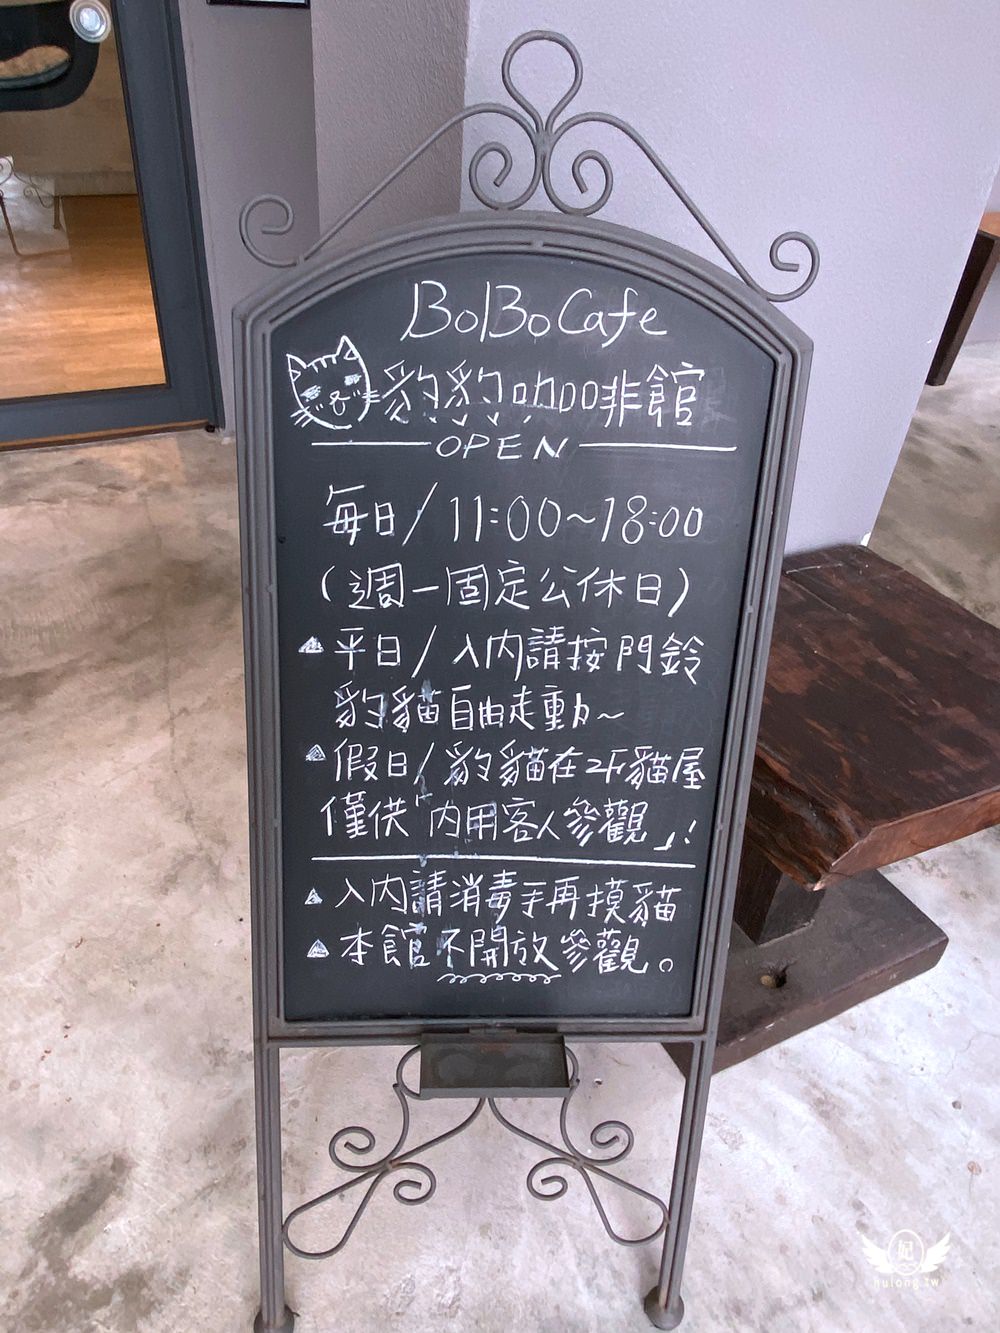 BoBo Cafe
豹豹咖啡館
OPEN
每日/11:00~18:00
(週一固定公休日)
▲平日/入內請按門鈴
豹貓自由走動~
▲假日/豹貓在2F貓屋
僅供「內用客人參觀」!
▲入內請消毒手再摸貓
▲本館不開放參觀。
妃
hulong.tw